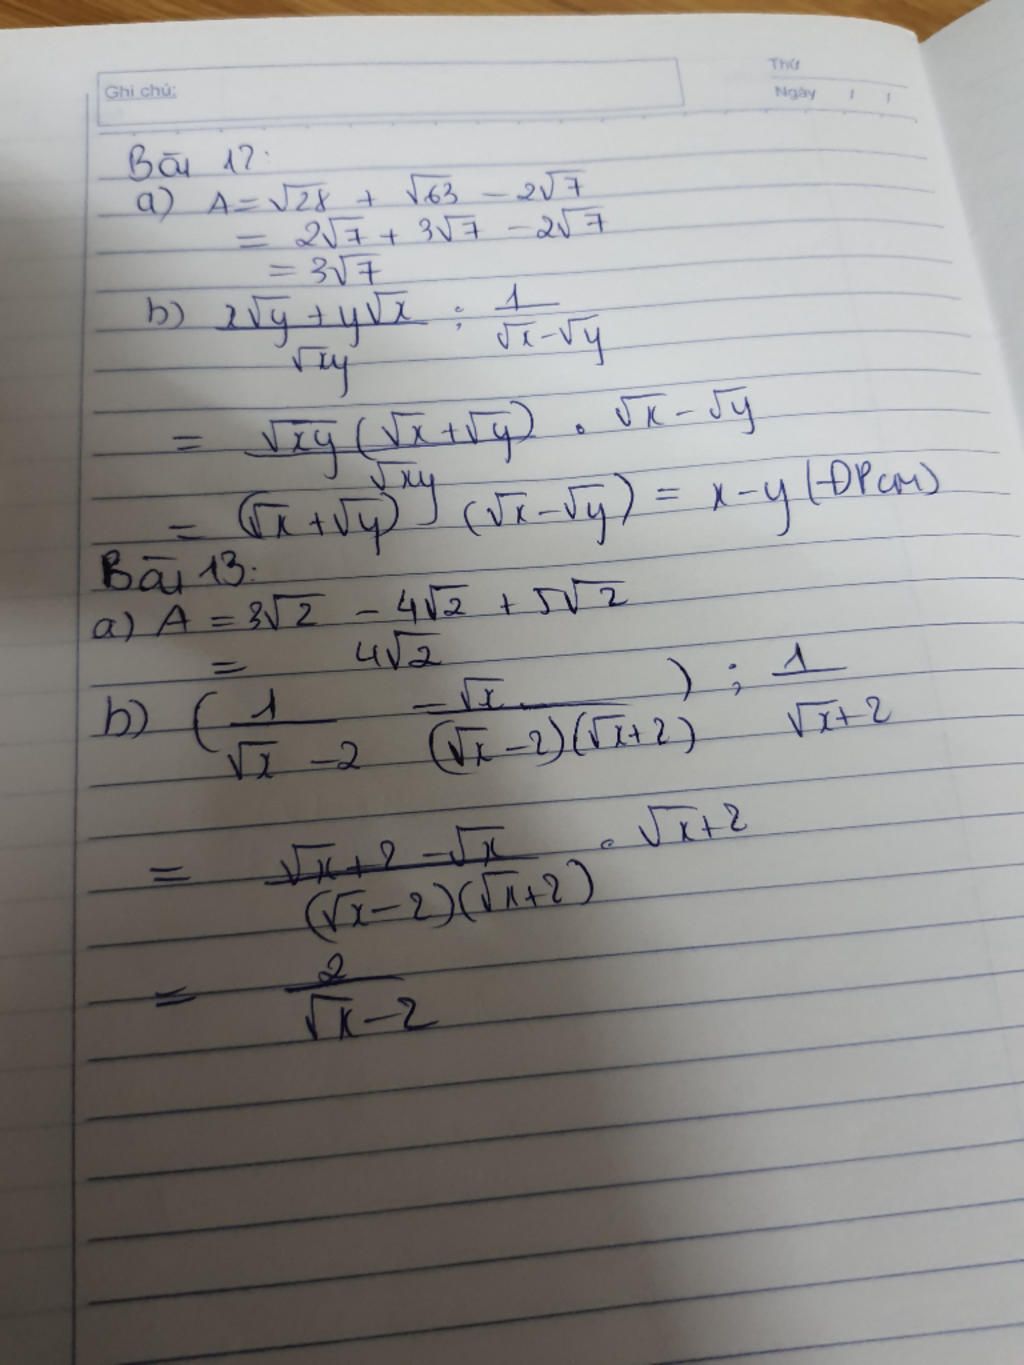 Ghi chú:
Thứ
Ngày / /
Bài 12:
a) A = √28 + √63 - 2√7
= 2√7 + 3√7 - 2√7
= 3√7
b) x√y + y√x / √xy : 1 / √x - √y
= √xy (√x + √y) / √xy . √x - √y
= (√x + √y) (√x - √y) = x - y (ĐPCM)
Bài 13:
a) A = 3√2 - 4√2 + 5√2
= 4√2
b) ( 1 / √x - 2 - √x / (√x - 2)(√x + 2) ) : 1 / √x + 2
= √x + 2 - √x / (√x - 2)(√x + 2) . √x + 2
= 2 / √x - 2